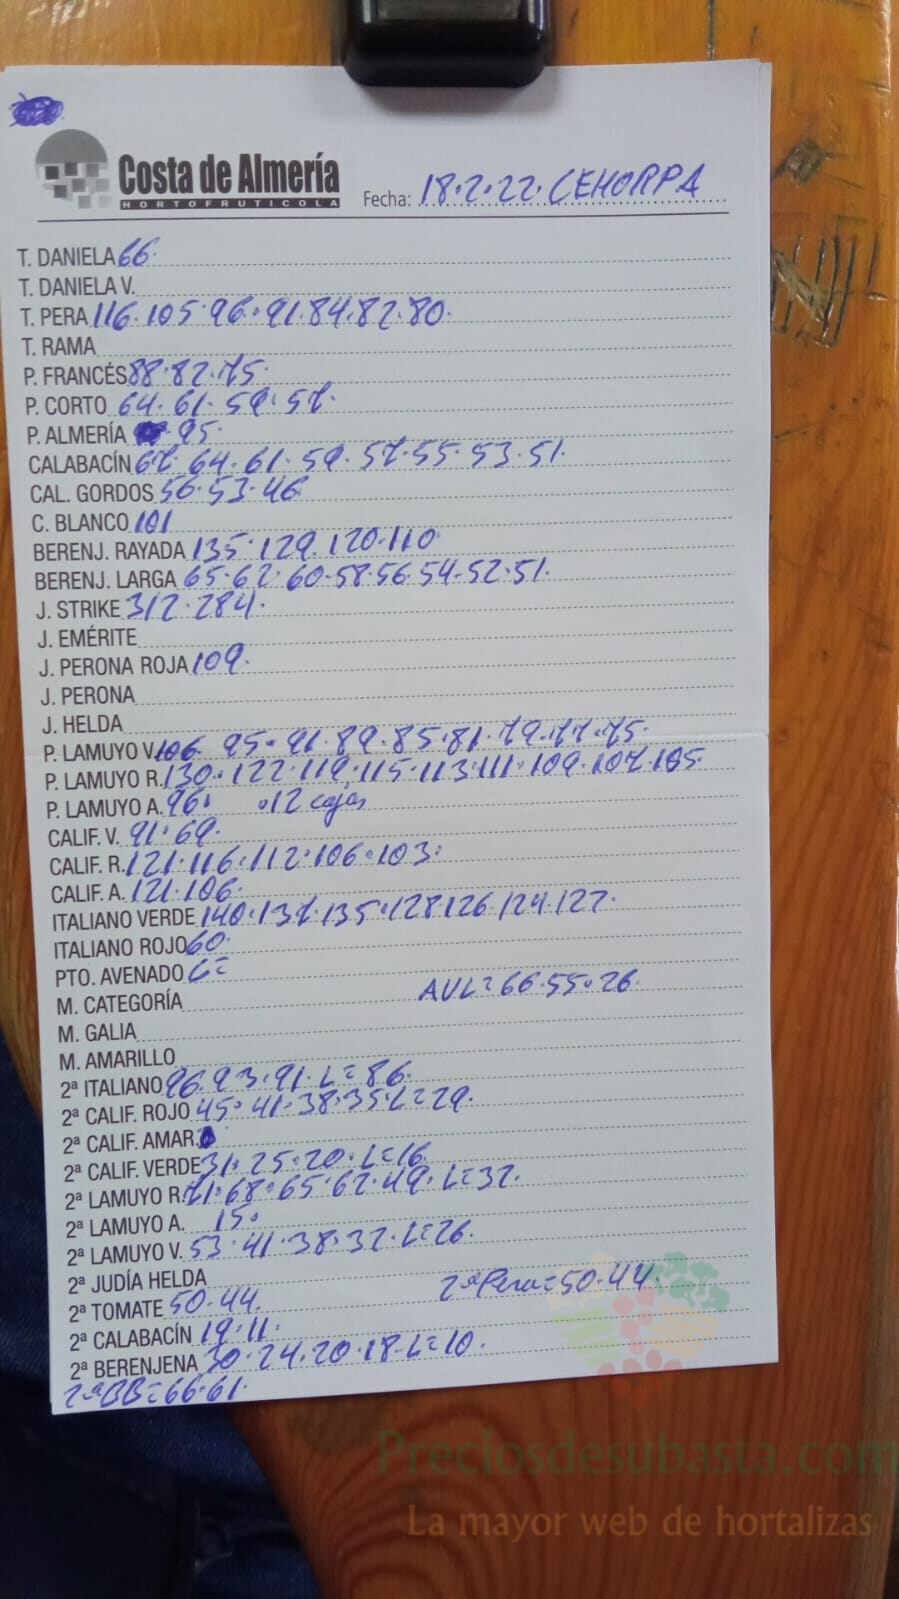 Costa de Almería
HORTOFRUTICOLA
Fecha: 18·2·22· CEHORPA
T. DANIELA 66·
T. DANIELA V.
T. PERA 116·105·96·91·84·82·80·
T. RAMA
P. FRANCÉS 88·82·75·
P. CORTO 64·61·59·57·
P. ALMERÍA 95·
CALABACÍN 67·64·61·59·57·55·53·51·
CAL. GORDOS 56·53·46
C. BLANCO 101
BERENJ. RAYADA 135·129·120·110
BERENJ. LARGA 65·62·60·58·56·54·52·51·
J. STRIKE 312·284·
J. EMÉRITE
J. PERONA ROJA 109·
J. PERONA
J. HELDA
P. LAMUYO V. 106· 95·91·89·85·81·79·77·75·
P. LAMUYO R. 130·122·119·115·113·111·109·107·105
P. LAMUYO A. 96· ·12 cajas
CALIF. V. 91·69·
CALIF. R. 121·116·112·106·103·
CALIF. A. 121·106·
ITALIANO VERDE 140·137·135·128·126·124·122·
ITALIANO ROJO 60·
PTO. AVENADO
M. CATEGORÍA AVL=66·55·26·
M. GALIA
M. AMARILLO
2ª ITALIANO 96·93·91·L=86·
2ª CALIF. ROJO 45·41·38·35·L=29·
2ª CALIF. AMAR.
2ª CALIF. VERDE 31·25·20·L=16·
2ª LAMUYO R. 71·68·65·62·49·L=32·
2ª LAMUYO A. 15·
2ª LAMUYO V. 53·41·38·32·L=26·
2ª JUDÍA HELDA
2ª TOMATE 50·44· 2ªPera=50·44·
2ª CALABACÍN 19·11·
2ª BERENJENA 30·24·20·18·L=10·
2ªBB=66·61·
Preciosdesubasta.com
La mayor web de hortalizas